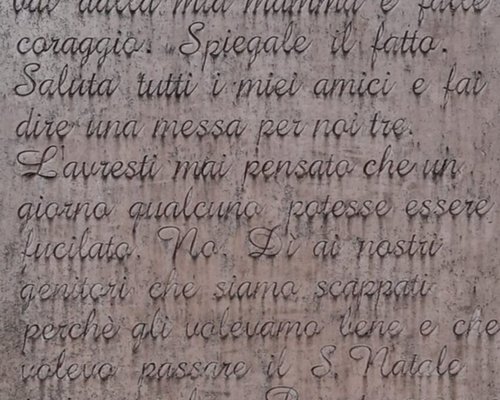 vai dalla mia mamma e falle
coraggio. Spiegale il fatto.
Saluta tutti i miei amici e fai
dire una messa per noi tre.
L'avresti mai pensato che un
giorno qualcuno potesse essere
fucilato. No. Dì ai nostri
genitori che siamo scappati
perchè gli volevamo bene e che
volevo passare il S. Natale